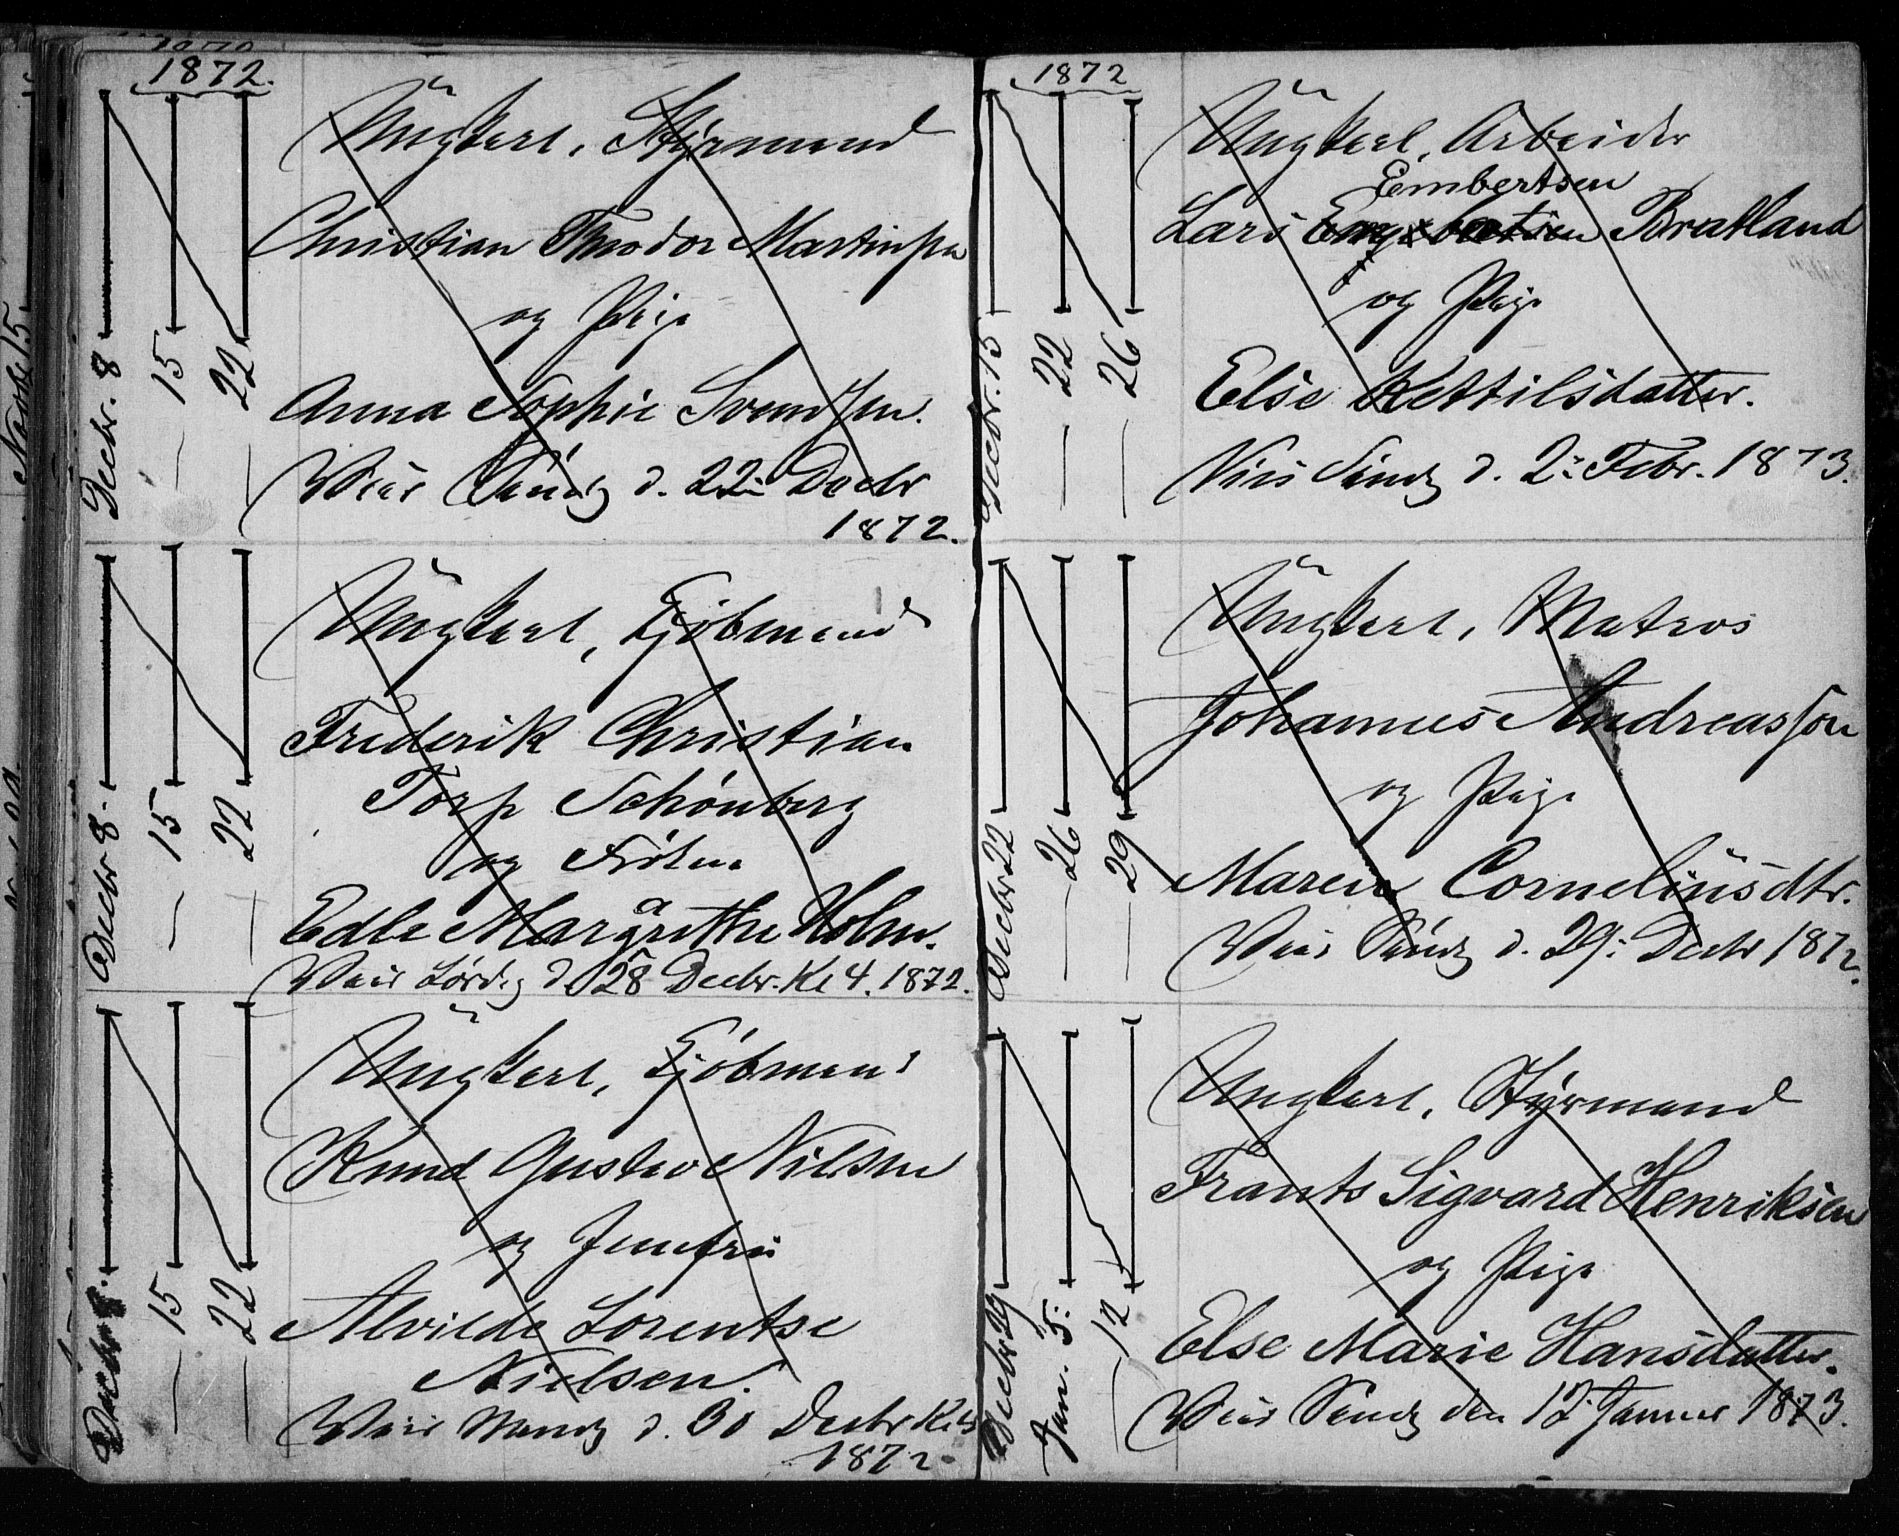 1872.
Decbr. 8
— 15
— 22
Ungkarl, Styrmand
Christian Theodor Martinsen
og Pige
Anna Sophie Svendsen.
Viet Søndg d. 22: Decbr
1872.
Decbr 8.
— 15
— 22
Ungkarl, Kjøbmand
Frederik Christian
Torp Schønberg
og Frøken
Edle Margarethe Holm.
Viet Lørdg d 28 Decbr. Kl 4. 1872.
Decbr 8.
— 15
— 22
Ungkarl, Kjøbmand
Knud Gustav Nielsen
og Jomfru
Alvilde Lorentse
Nielsen.
Viet Mandg d. 30 Decbr Kl
1872.
1872
Decbr. 15
— 22
— 26
Ungkarl, Arbeider
Embertsen
Lars Bratland
og Pige
Else Kettilsdatter.
Viet Søndg d. 2: Febr. 1873.
Decbr 22
— 26
— 29
Ungkarl, Matros
Johannes Andreassen
og Pige
Maren Corneliusdtr.
Viet Søndg d. 29: Decbr 1872.
Decbr 29
Jan. 5:
— 12
Ungkarl, Styrmand
Frants Sigvard Henriksen
og Pige
Else Marie Hansdatter.
Viet Søndg den 12 Januar 1873.